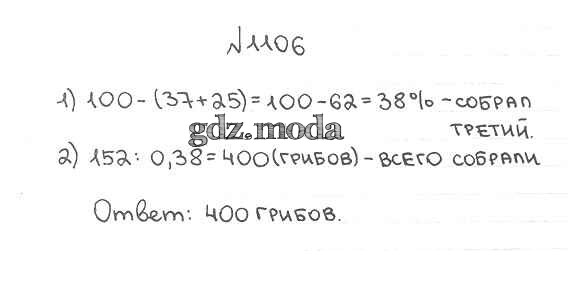 №1106
1) 100-(37+25)=100-62=38% -СОБРАЛ
gdz.moda
ТРЕТИЙ.
2) 152: 0,38=400(ГРИБОВ)-ВСЕГО СОБРАЛИ
Ответ: 400 ГРИБОВ.